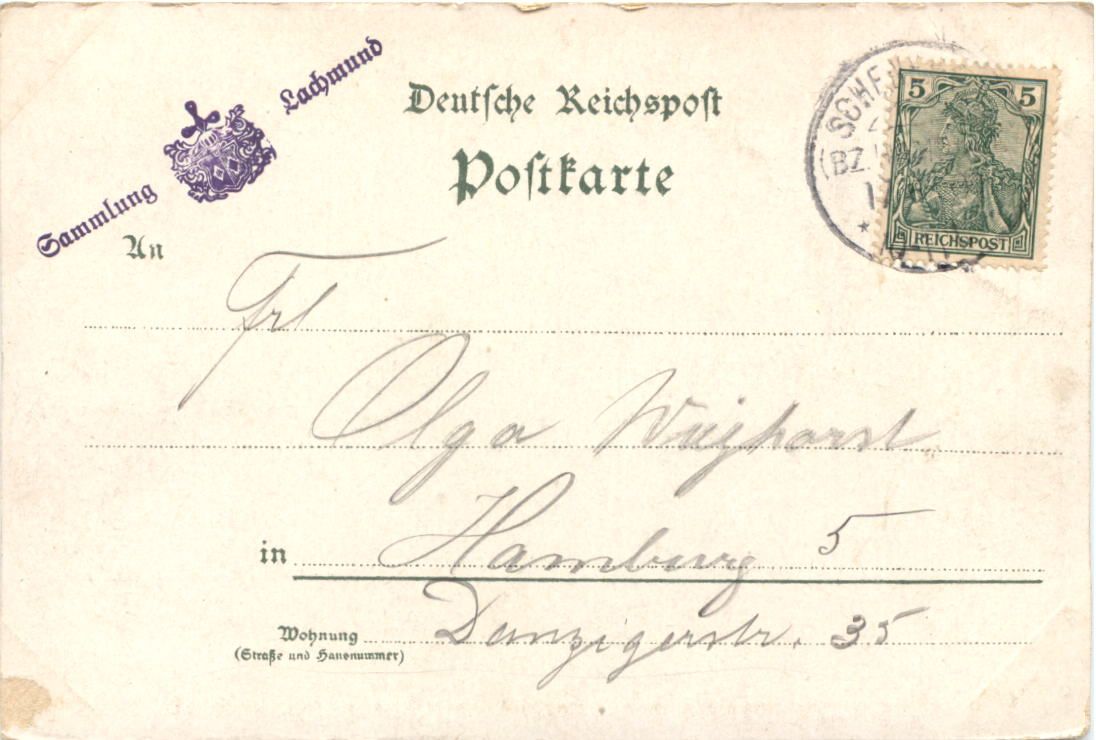 Sammlung Lachmund
Deutsche Reichspost
Postkarte
5 5
REICHSPOST
(BZ.
An
Frl
Olga
in Hamburg 5
Wohnung Danzigerstr. 35
(Straße und Hausnummer)